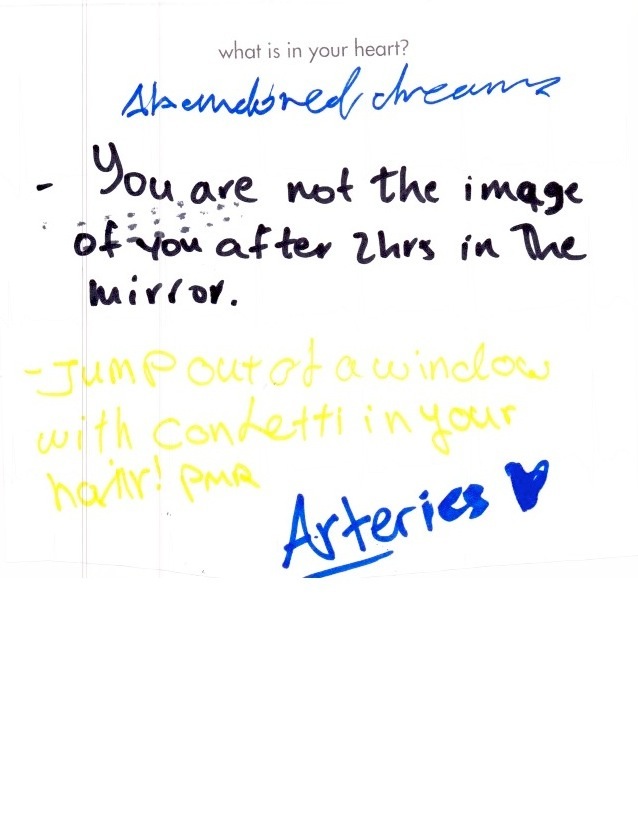 what is in your heart?
Abandoned dreams
- You are not the image
of you after 2hrs in The
mirror.
- Jump out of a window
with confetti in your
hair! PMR
Arteries